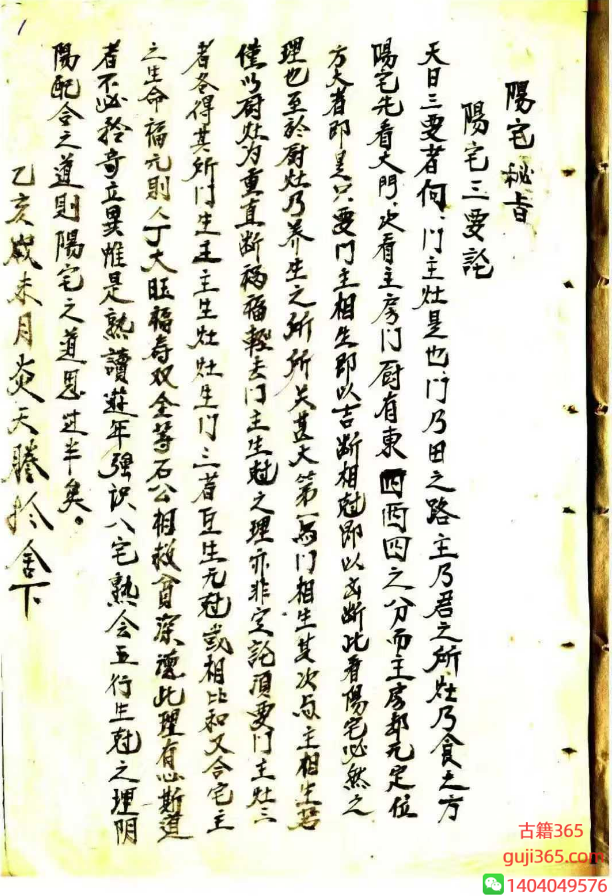 1
陽宅秘旨
陽宅三要訟
天日三要者何、門主灶是也、門乃田之路主乃君之所灶乃食之方
陽宅先看大門、次看主房門厨有東四西四之分而主房却元定位
方大者即是只要門主相生即以吉断相尅即以凶断此看陽宅必然之
理也至於厨灶乃养生之所所关甚大第一为門相生其次与主相生若
僅以厨灶为重直断禍福輕去門主生尅之理亦非定訟須要門主灶三
者各得其所門生主主生灶灶生門三者互生元尅或相比和又合宅主
之生命福元則人丁大旺福寿双全等石公相救貧深遠此理有心斯道
者不必矜奇立異惟是熟讀遊年强识八宅熟会五行生尅之理阴
陽配合之道則陽宅之道思过半矣。
乙亥歲未月炎天謄於舍下
古籍365
guji365.com
1404049576